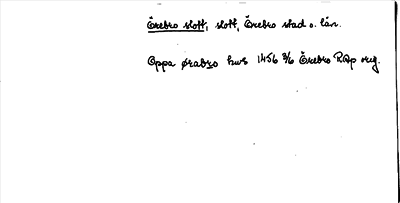 Örebro slott, slott, Örebro stad o. län.
Oppa ørabro hws 1456 3/6 Örebro RAp orig.